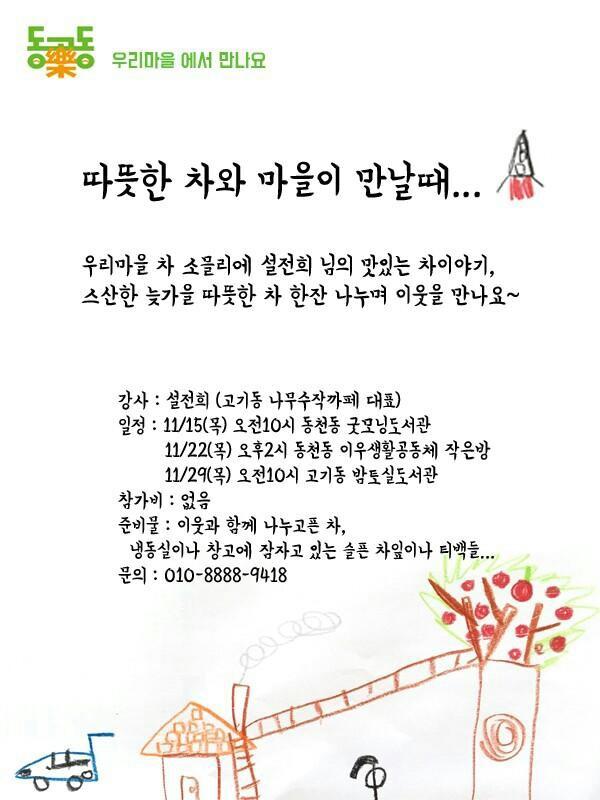 동고동
樂
우리마을 에서 만나요
따뜻한 차와 마을이 만날때...
우리마을 차 소믈리에 설전희 님의 맛있는 차이야기,
스산한 늦가을 따뜻한 차 한잔 나누며 이웃을 만나요~
강사 : 설전희 (고기동 나무수작까페 대표)
일정 : 11/15(목) 오전10시 동천동 굿모닝도서관
11/22(목) 오후2시 동천동 이우생활공동체 작은방
11/29(목) 오전10시 고기동 밤토실도서관
참가비 : 없음
준비물 : 이웃과 함께 나누고픈 차,
냉동실이나 창고에 잠자고 있는 슬픈 차잎이나 티백들...
문의 : 010-8888-9418